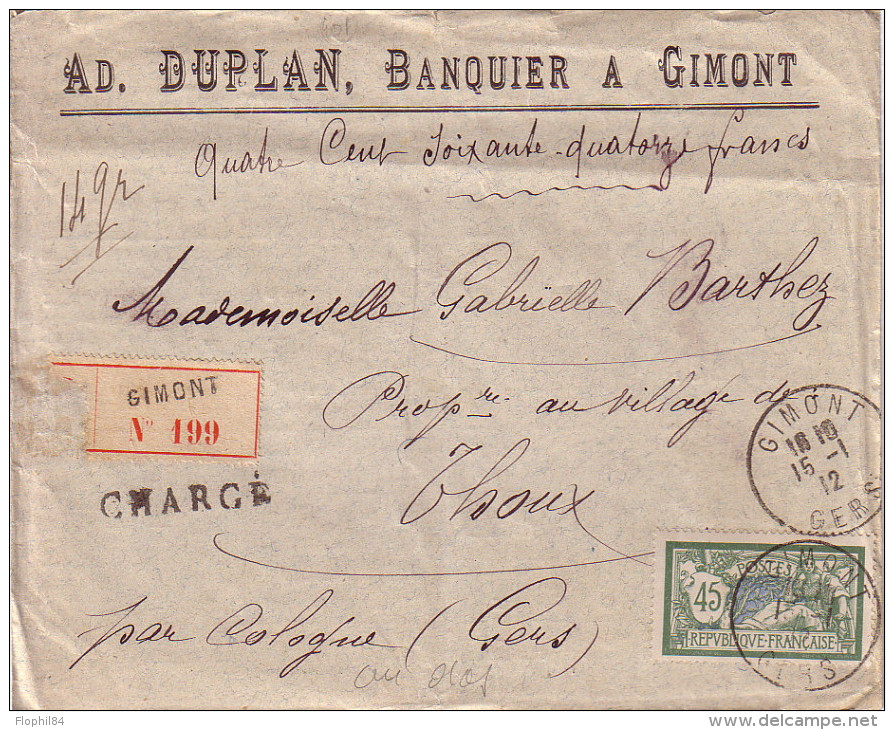 AD. DUPLAN, BANQUIER A GIMONT
Quatre Cent Soixante-quatorze francs
14 gr
Mademoiselle Gabrielle Barthez
GIMONT
N° 199
Propre au village de
CHARGÉ
Thoux
GIMONT
15 -1
12
GERS
POSTES
45
REPVBLIQVE FRANÇAISE
GIMONT
GERS
par Cologne (Gers)
au dos
Flophil84
www.delcampe.net